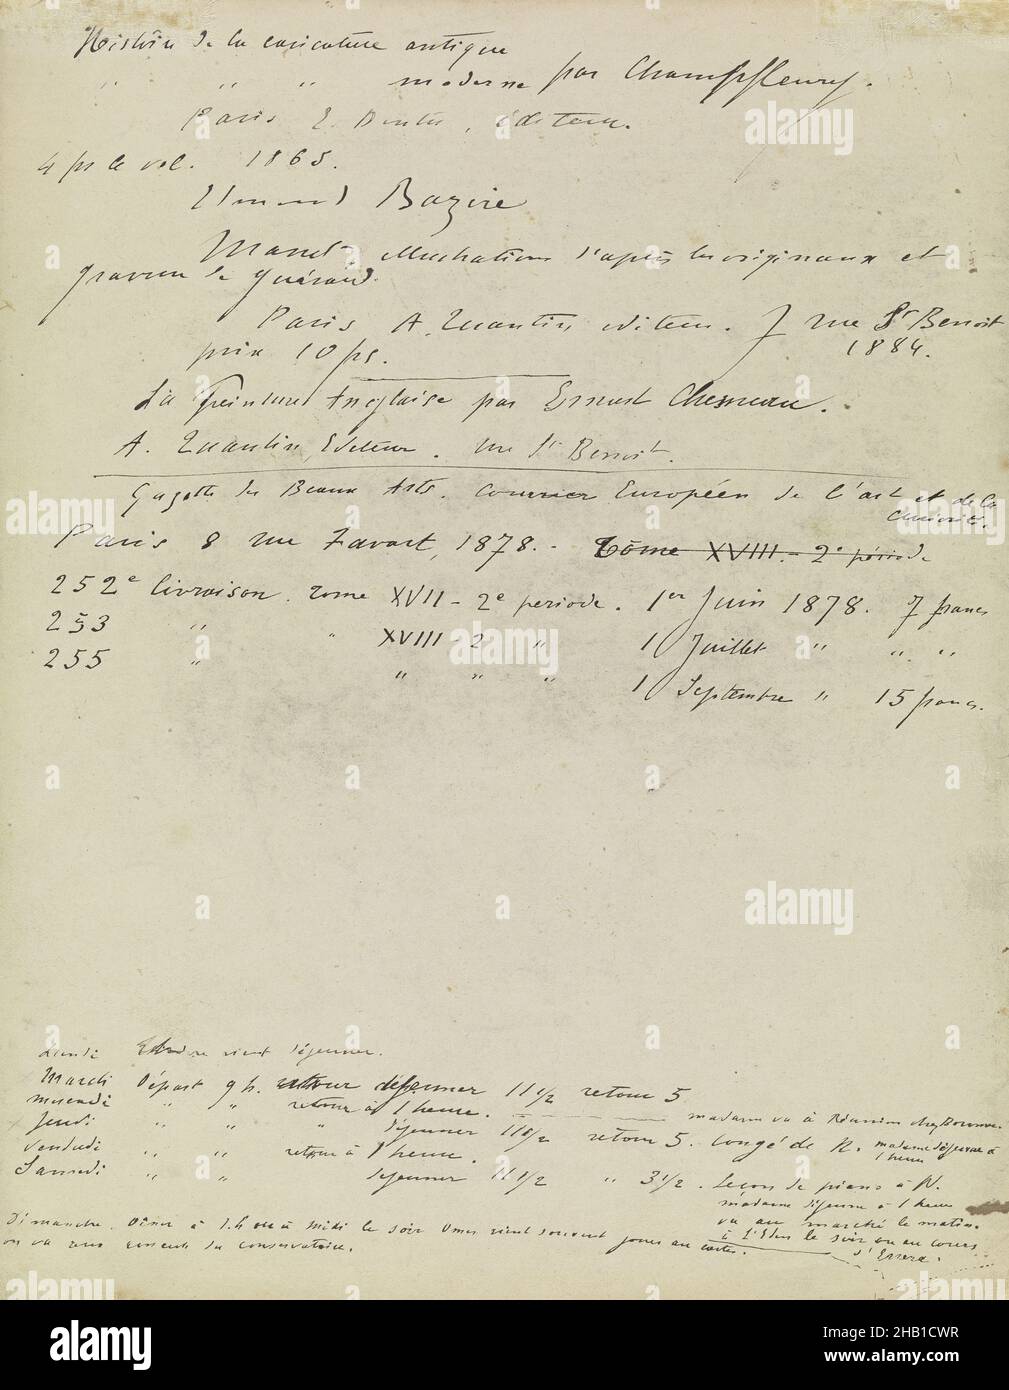 Histoire de la caricature antique
" " " moderne par Champfleury.
Paris E. Dentu, éditeur.
4 frs le vol. 1865.
Edmond Bazire
Manet, illustrations d'après les originaux et
gravures de Guérard.
Paris A. Quantin editeur. 7 rue St Benoit
prix 10 frs. 1884.
La Peinture Anglaise par Ernest Chesneau.
A. Quantin, Editeur. rue St Benoit.
Gazette des Beaux Arts. Courrier Européen de l'art et de la
curiosité.
Paris 8 rue Favart, 1878. - Tôme XVIII - 2e période
252e livraison. tome XVII - 2e periode. 1er Juin 1878. 7 francs
253 " " XVIII - 2 " 1 Juillet " " "
255 " " " " 1 Septembre " 15 francs.
Lundi vient déjeuner.
Mardi Départ 9 h. retour déjeuner 11 1/2 retour 5
mercredi " " retour à 1 heure. madame va à Réunion chez
Jeudi " " " déjeuner 11 1/2 retour 5. Congé de N. madame déjeune à
1 heure
Vendredi " " retour à 1 heure.
Samedi " " déjeuner 11 1/2 " 3 1/2. Leçon de piano à N.
madame déjeune à 1 heure
va au marché le matin.
à l'Eden le soir ou au cours
d'Essera.
Dimanche. Dîner à 1 h ou à midi le soir Omer vient souvent jouer au cartes.
on va aux concerts du conservatoire.
alamy
alamy
Image ID: 2HB1CWR
www.alamy.com